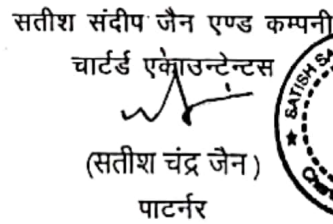 सतीश संदीप जैन एण्ड कम्पनी
चार्टर्ड एकाउन्टेन्टस
(सतीश चंद्र जैन)
पाटर्नर
SATISH SA